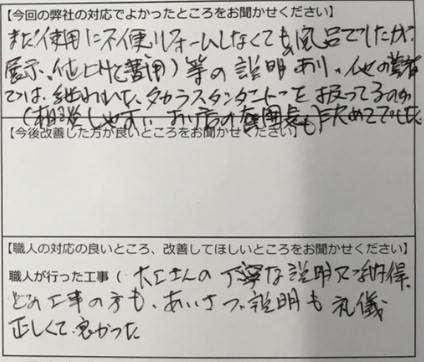 【今回の弊社の対応でよかったところをお聞かせください】
まだ使用に不便、リフォームしなくてもOK品でしたが
展示、値上げで善用)等の説明あり、他の業者
では、嫌われた、タカラスタンダートを扱ってるのが
(相談しやすい、お店の雰囲気も)決めてでした
【今後改善した方が良いところをお聞かせください】
【職人の対応の良いところ、改善してほしいところをお聞かせください】
職人が行った工事( 大工さんの丁寧な説明又納得、
どの工事の方も、あいさつ、説明も礼儀
正しくて良かった